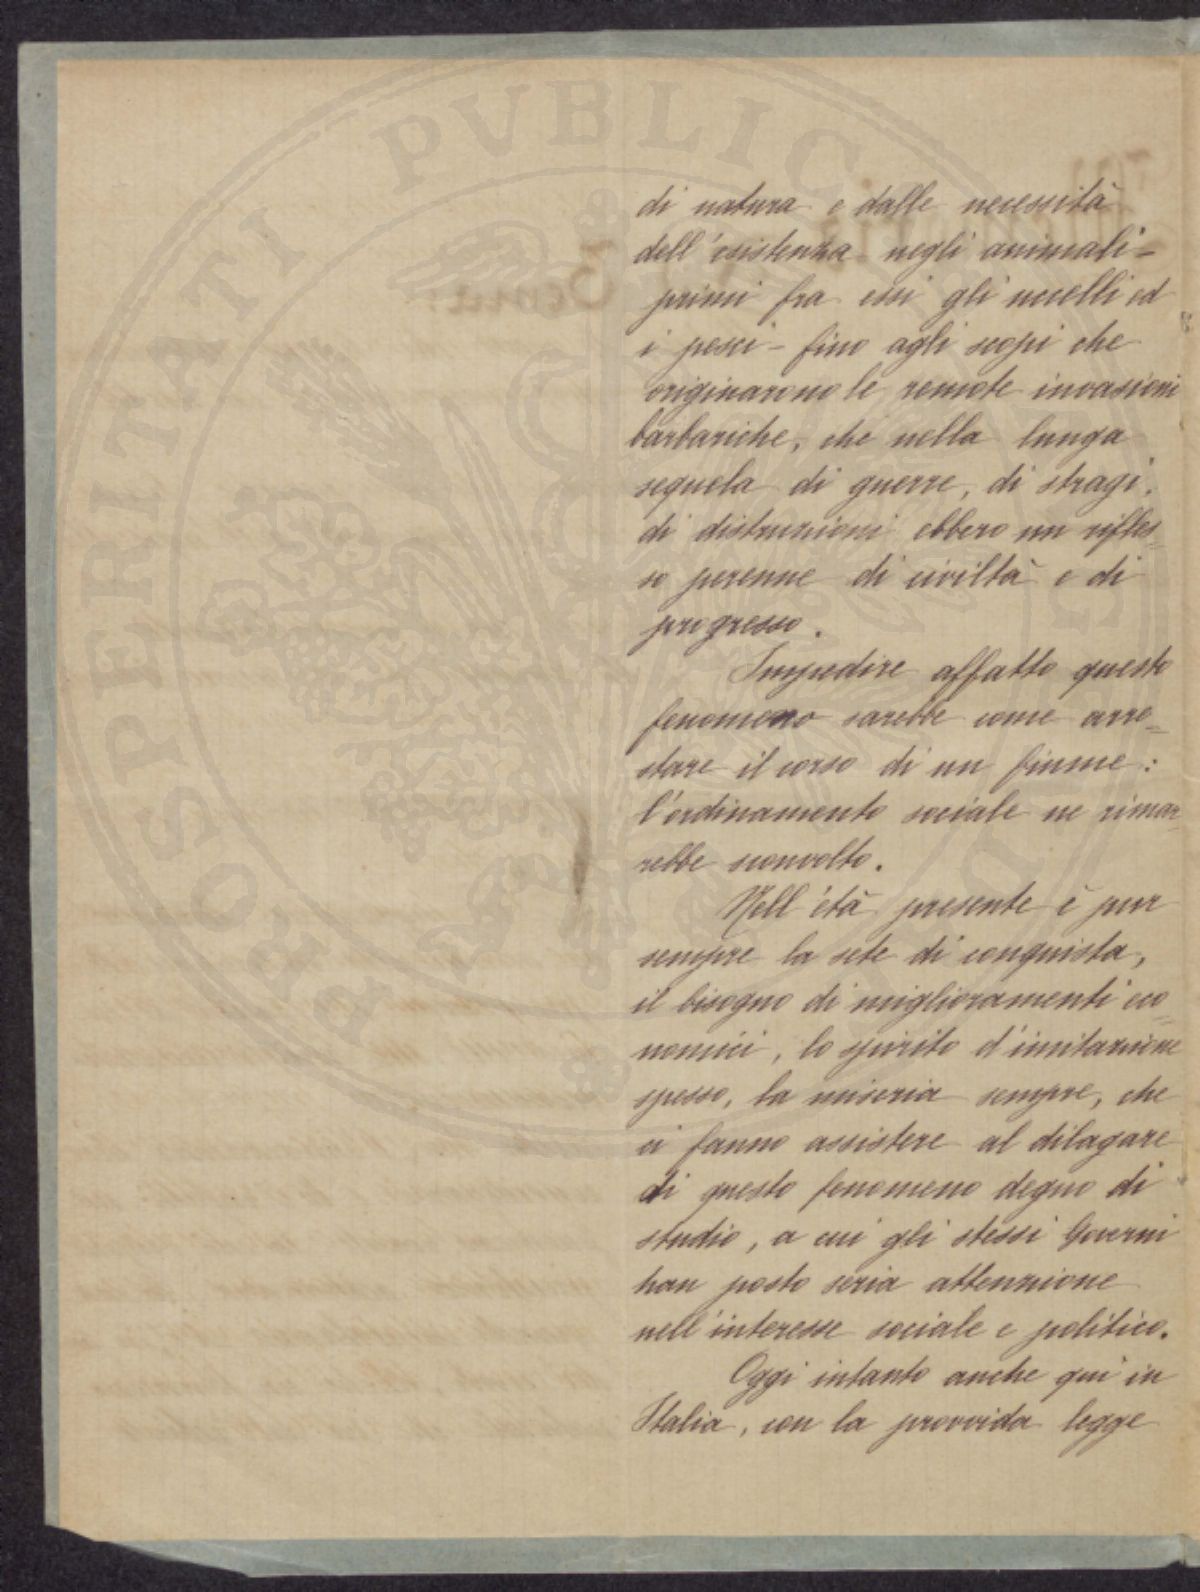 di natura e dalle necessità
dell'esistenza negli animali -
primi fra essi gli uccelli ed
i pesci - fino agli scopi che
originarono le remote invasioni
barbariche, che nella lunga
sequela di guerre, di stragi,
di distruzioni ebbero un rifles=
so perenne di civiltà e di
progresso.
Impedire affatto questo
fenomeno sarebbe come arre=
stare il corso di un fiume:
l'ordinamento sociale ne rimar=
rebbe sconvolto.
Nell'età presente è pur
sempre la sete di conquista,
il bisogno di miglioramenti eco=
nomici, lo spirito d'imitazione
spesso, la miseria sempre, che
ci fanno assistere al dilagare
di questo fenomeno degno di
studio, a cui gli stessi Governi
han posto seria attenzione
nell'interesse sociale e politico.
Oggi intanto anche qui in
Italia, con la provvida legge
PROSPERITATI PUBLIC